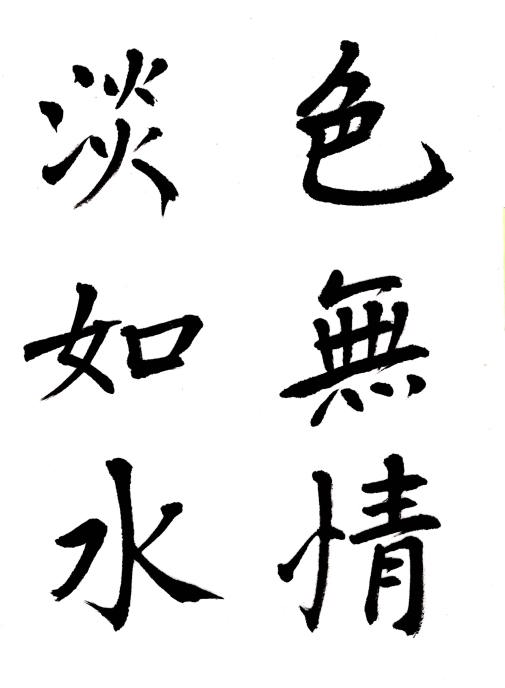 色無情
淡如水